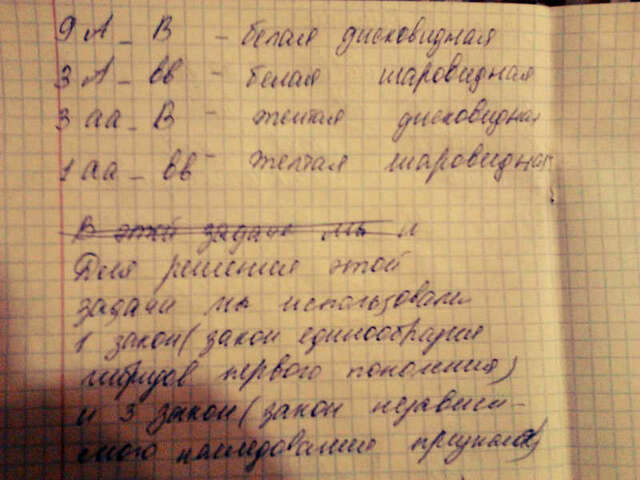 9 А_ В - белая дисковидная
3 А_ вв - белая шаровидная
3 аа_ В - желтая дисковидная
1 аа_ вв - желтая шаровидная
В этой задаче мы и
Для решения этой
задачи мы использовали
1 закон (закон единообразия
гибридов первого поколения)
и 3 закон (закон независи-
мого наследования признаков)